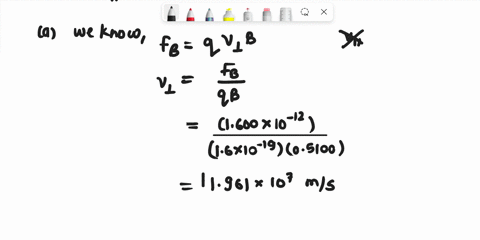 (a) we know, fB = q v⊥ B
v⊥ = fB / qB
= (1.600 × 10⁻¹²) / (1.6×10⁻¹⁹)(0.5100)
= 11.961 × 10⁷ m/s